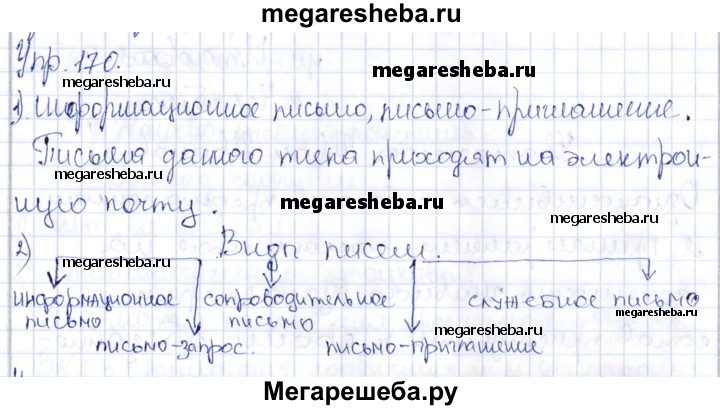 megaresheba.ru
Упр. 170.
megaresheba.ru
megaresheba.ru
1). Информационное письмо, письмо-приглашение.
Письма данного типа приходят на электрон-
megaresheba.ru
ную почту.
megaresheba.ru
2) Виды писем.
megaresheba.ru
megaresheba.ru
информационное письмо
сопроводительное письмо
служебное письмо
megaresheba.ru
megaresheba.ru
письмо-запрос.
письмо-приглашение
megaresheba.ru
Мегарешеба.ру